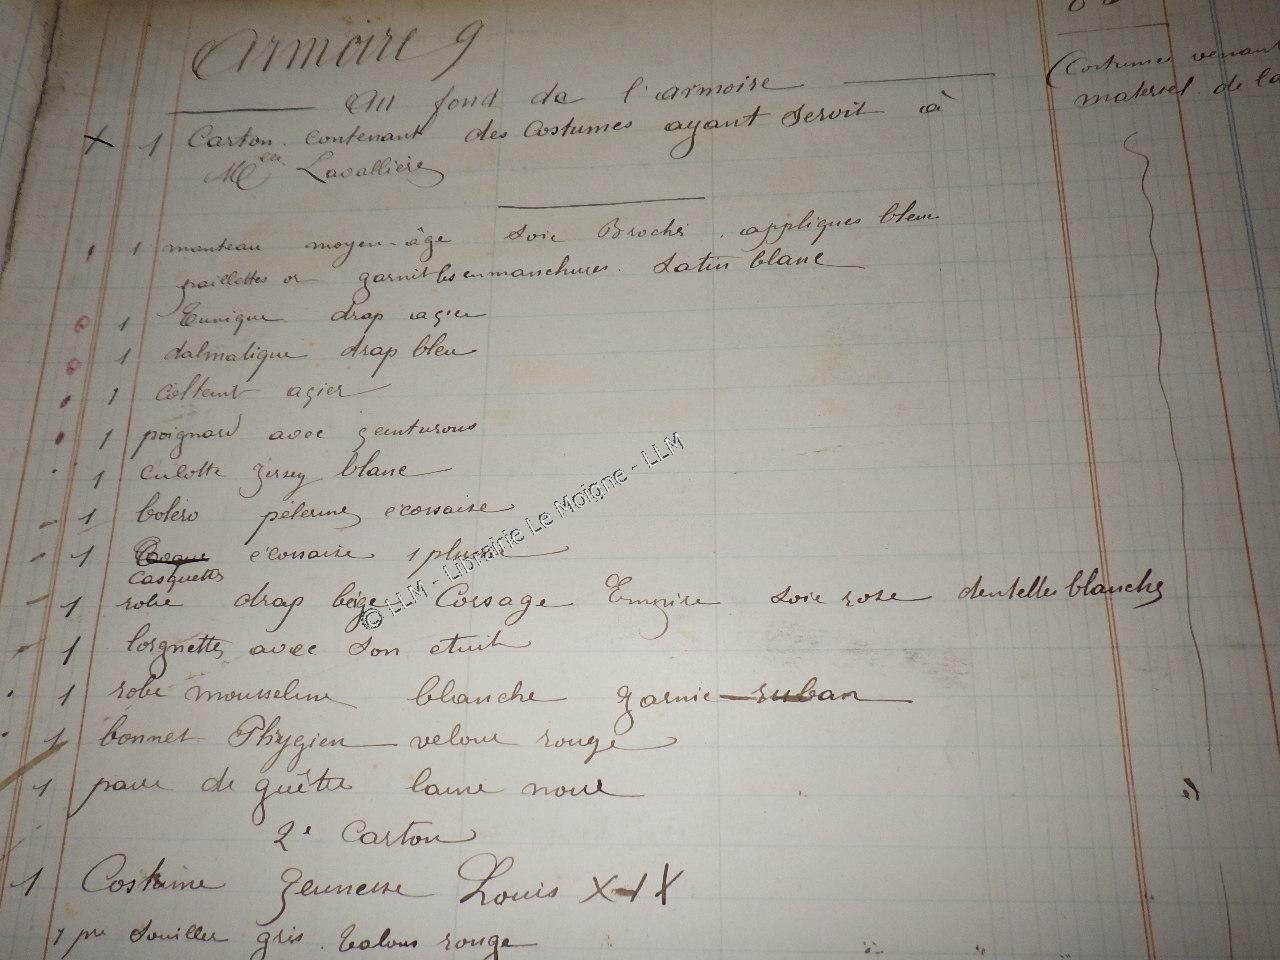 Armoire 9
Au fond de l'armoire
(Costumes venant
materiel de la
X 1 Carton contenant des Costumes ayant Servit à
Melle Lavallière
1 manteau moyen-âge Soie Broché appliques bleu
paillettes or garnit les emmanchures. Satin blanc
1 Tunique drap acier
1 dalmatique drap bleu
1 acier
1 poignard avec ceinturons
1 culotte Jersey blanc
1 boléro pélerine écossaise
1 Casque écossaise 1 plume
casquette
1 robe drap beige Corsage Empire Soie rose dentelles blanches
1 lorgnette avec Son etuit
1 robe mousseline blanche garnie ruban
1 bonnet Phrygien velour rouge
1 paire de guêtre laine noire
2e Carton
1 Costume Jeunesse Louis XIX
1 pre Soulier gris. talons rouge
© LLM - Librairie Le Moigne - LLM